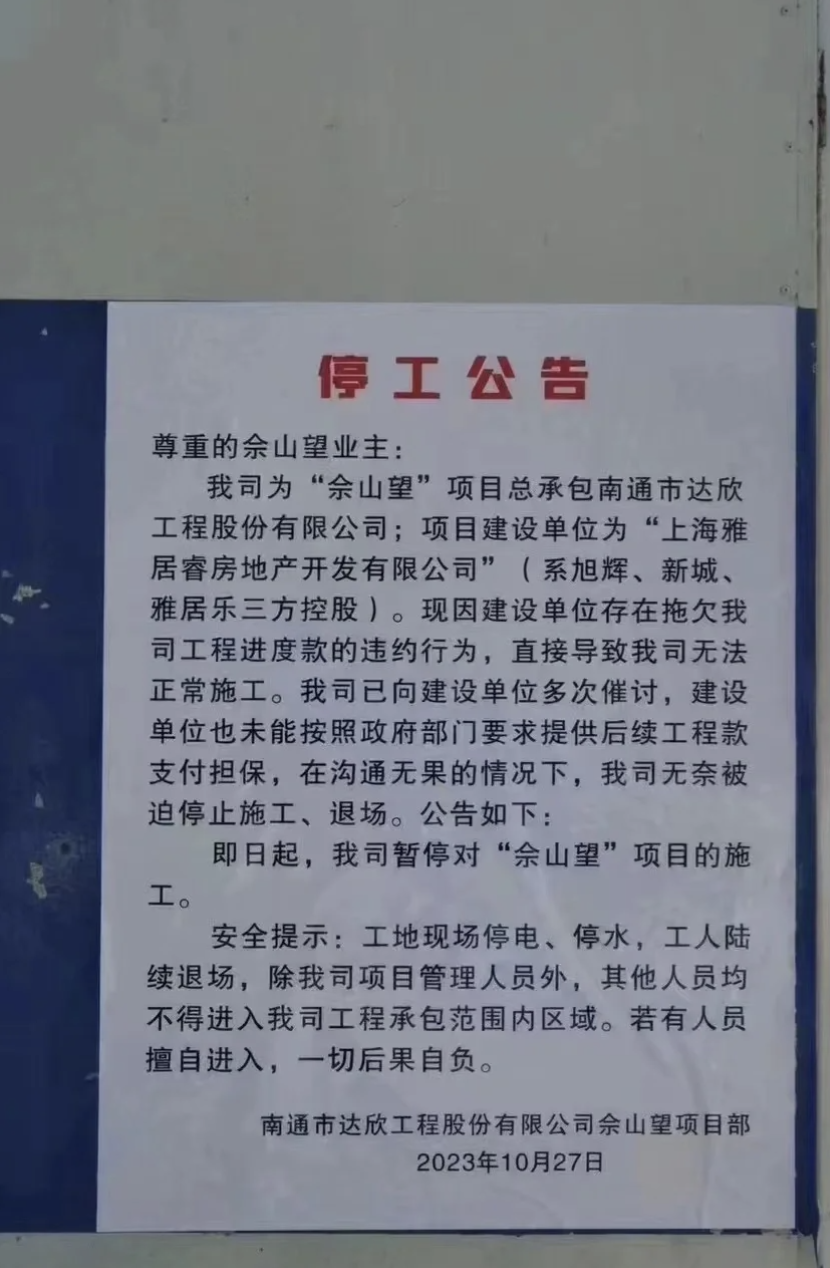 停工公告
尊重的佘山望业主：
我司为“佘山望”项目总承包南通市达欣
工程股份有限公司；项目建设单位为“上海雅
居睿房地产开发有限公司”（系旭辉、新城、
雅居乐三方控股）。现因建设单位存在拖欠我
司工程进度款的违约行为，直接导致我司无法
正常施工。我司已向建设单位多次催讨，建设
单位也未能按照政府部门要求提供后续工程款
支付担保，在沟通无果的情况下，我司无奈被
迫停止施工、退场。公告如下：
即日起，我司暂停对“佘山望”项目的施
工。
安全提示：工地现场停电、停水，工人陆
续退场，除我司项目管理人员外，其他人员均
不得进入我司工程承包范围内区域。若有人员
擅自进入，一切后果自负。
南通市达欣工程股份有限公司佘山望项目部
2023年10月27日